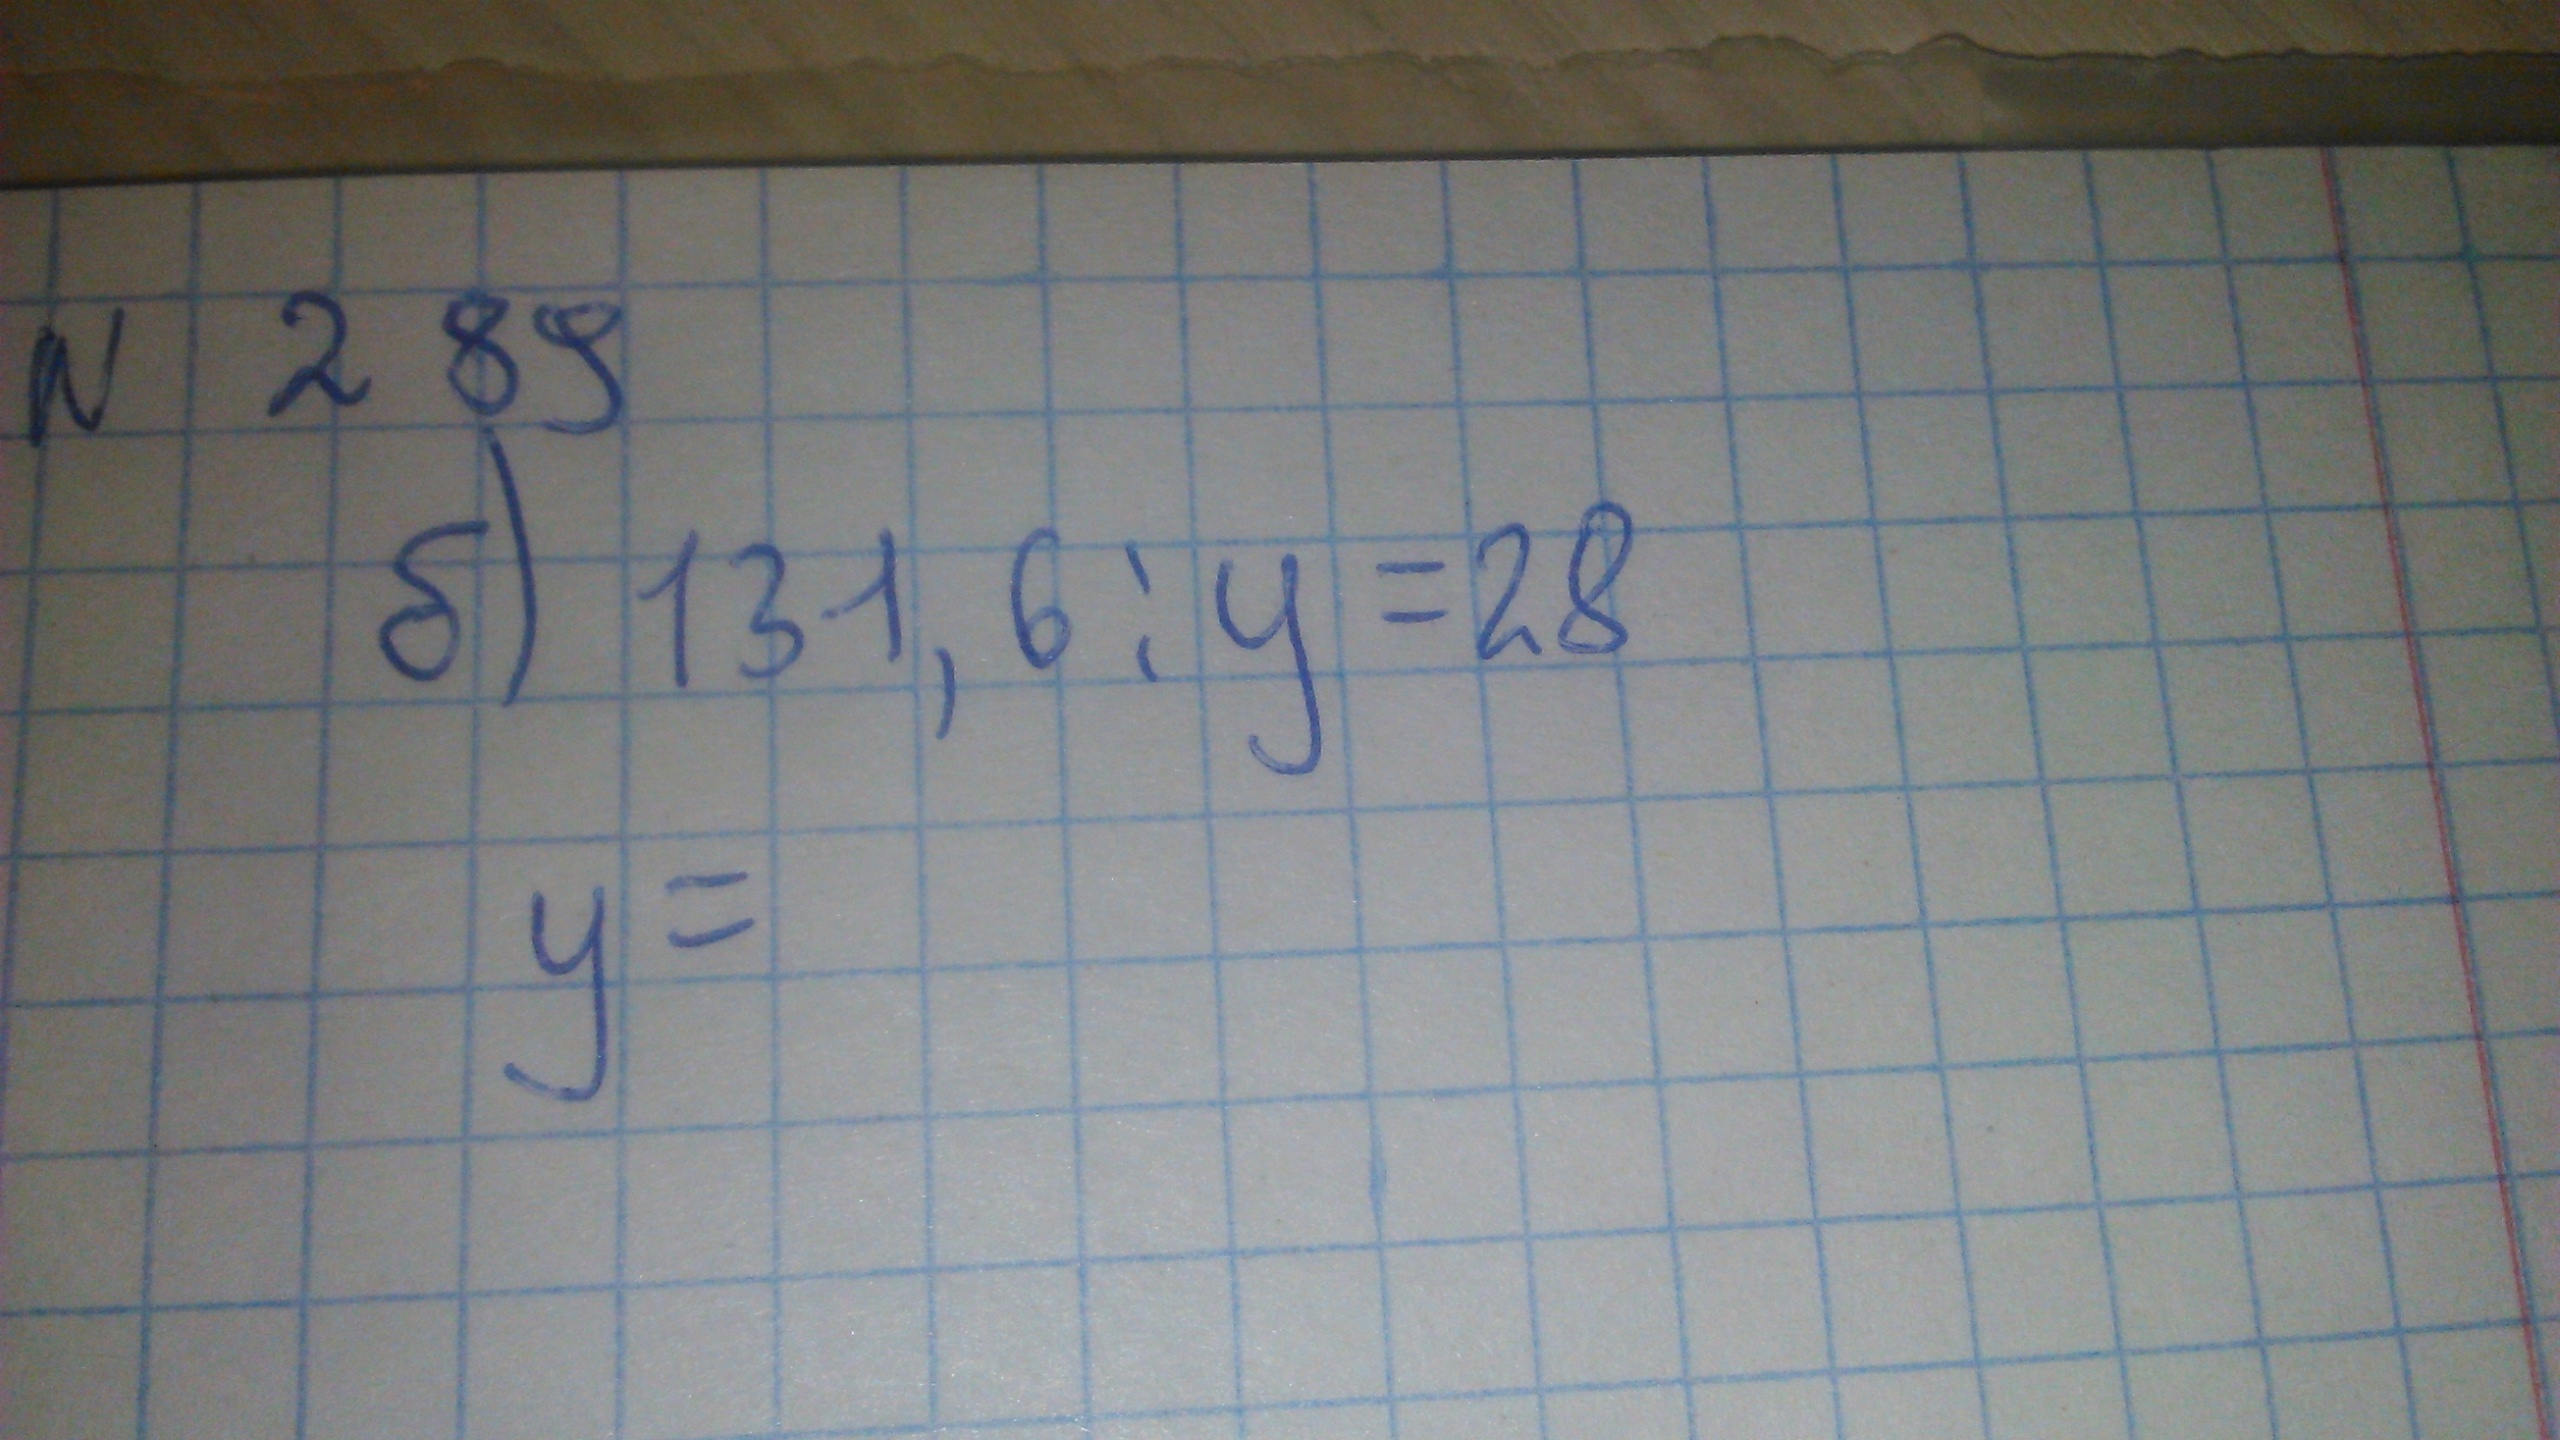 N 289
б) 131,6 : y = 28
y =